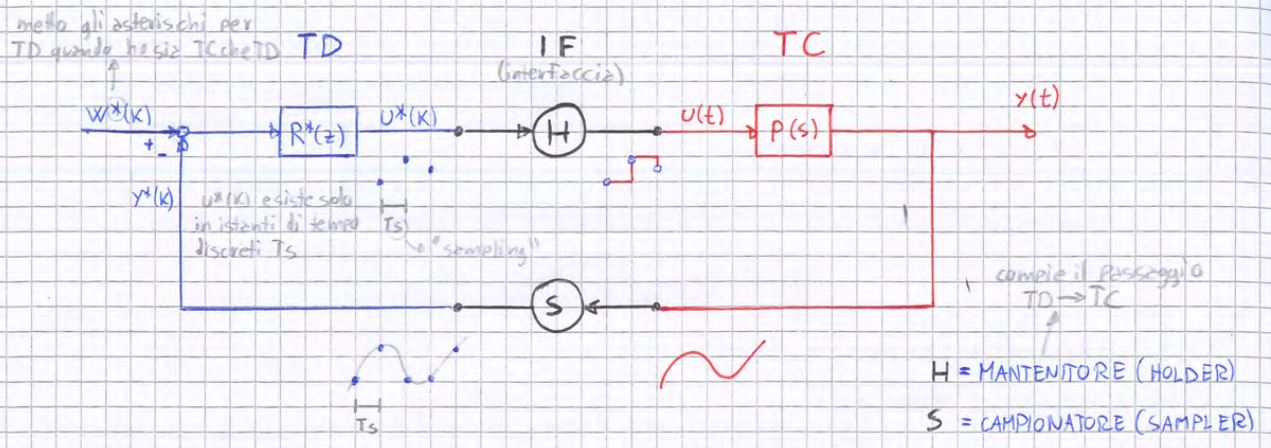 metto gli asterischi per
TD quando ho sia TC che TD
TD
IF
(interfaccia)
TC
W*(k)
+
-
R*(z)
U*(k)
H
U(t)
P(s)
y(t)
y*(k)
u*(k) esiste solo
in istanti di tempo
discreti Ts
Ts
"sampling"
S
Ts
compie il passaggio
TD→TC
H = MANTENITORE (HOLDER)
S = CAMPIONATORE (SAMPLER)